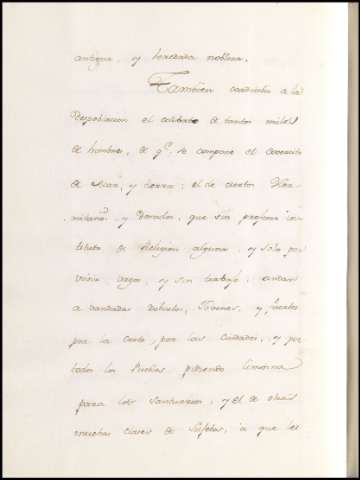 antigua, y heredada nobleza.
Tambien contribuie a la
Despoblacion el celibato de tantos miles
de hombres, de q.e se compone el exercito
de Mar, y tierra: el de ciertos Her-
mitaños y Donados, que sin profesar ins-
tituto de Religion alguna, y solo por
vivir vagos, y sin trabajo, andan
a vandadas robustos, Jovenes, y fuertes
por la Corte, por las Ciudades, y por
todos los Pueblos pidiendo limosna
para los santuarios, y el de otras
muchas clases de Sujetos, a que les